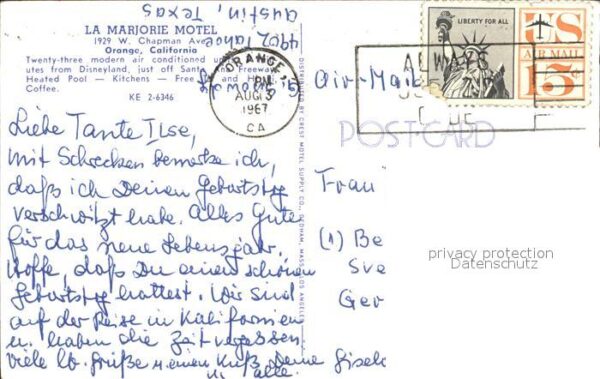 LA MARJORIE MOTEL
1929 W. Chapman Ave.
Orange, California
Twenty-three modern air conditioned
utes from Disneyland, just off Santa Freeway
Heated Pool — Kitchens — Free and
Coffee.
KE 2-6346
4902
Austin, Texas
ORANGE,
PM
AUG 3
1967
CA
ALWAYS
USE ZIP
LIBERTY FOR ALL
US
AIR MAIL
15¢
Air-Mail
POST CARD
DISTRIBUTED BY CREST MOTEL SUPPLY CO., NEEDHAM, MASS. LOS ANGELES
Liebe Tante Ilse,
mit Schrecken bemerke ich,
daß ich Deinen Geburtstag
verschwitzt habe. Alles Gute
für das neue Lebensjahr.
Hoffe, daß Du einen schönen
Geburtstag hattest. Wir sind
auf der Reise in Kalifornien
u. haben die Zeit vergessen.
Viele lb. Grüße u. einen Kuß, Deine Gisela
u. alle.
Frau
(1) Be
Sve
Ger
privacy protection
Datenschutz